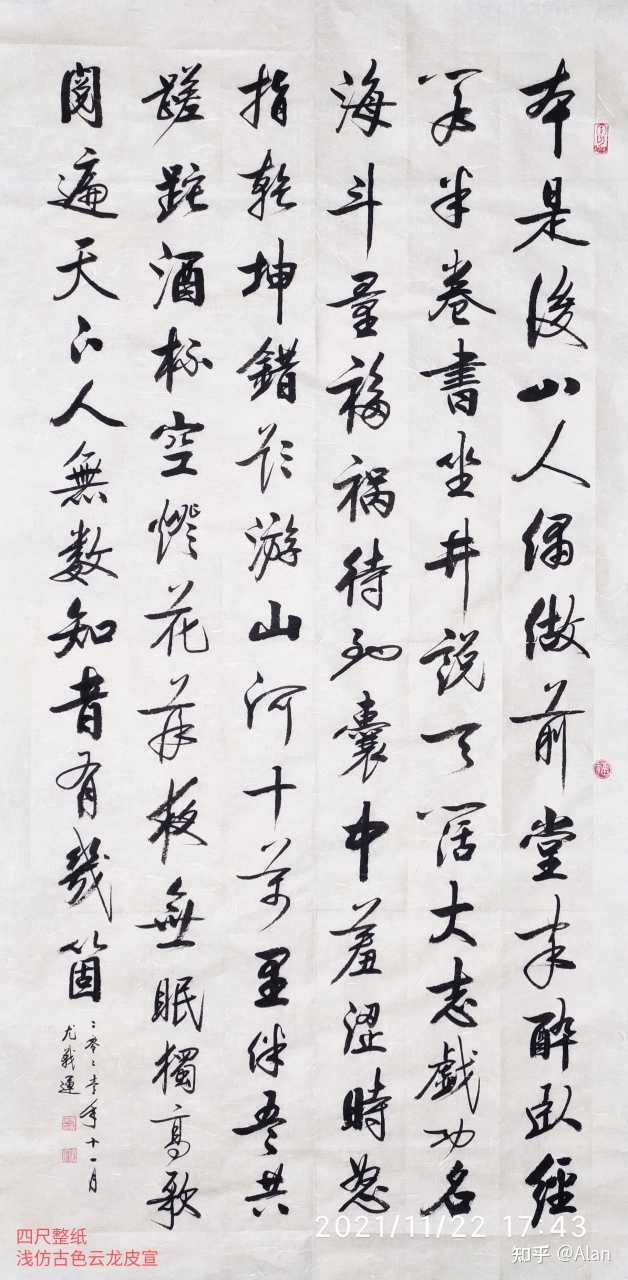 本是後山人偶做前堂客醉卧經
閣半卷書坐井說天闊大志戲功名
海斗量福禍待到囊中羞澀時怒
指乾坤錯欲游山河十萬里伴吾共
蹉跎酒杯空燈花落夜無眠獨高歌
閱遍天下人無數知音有幾箇
二零二壹年十一月
四尺整纸
浅仿古色云龙皮宣
2021/11/22 17:43
知乎 @Alan